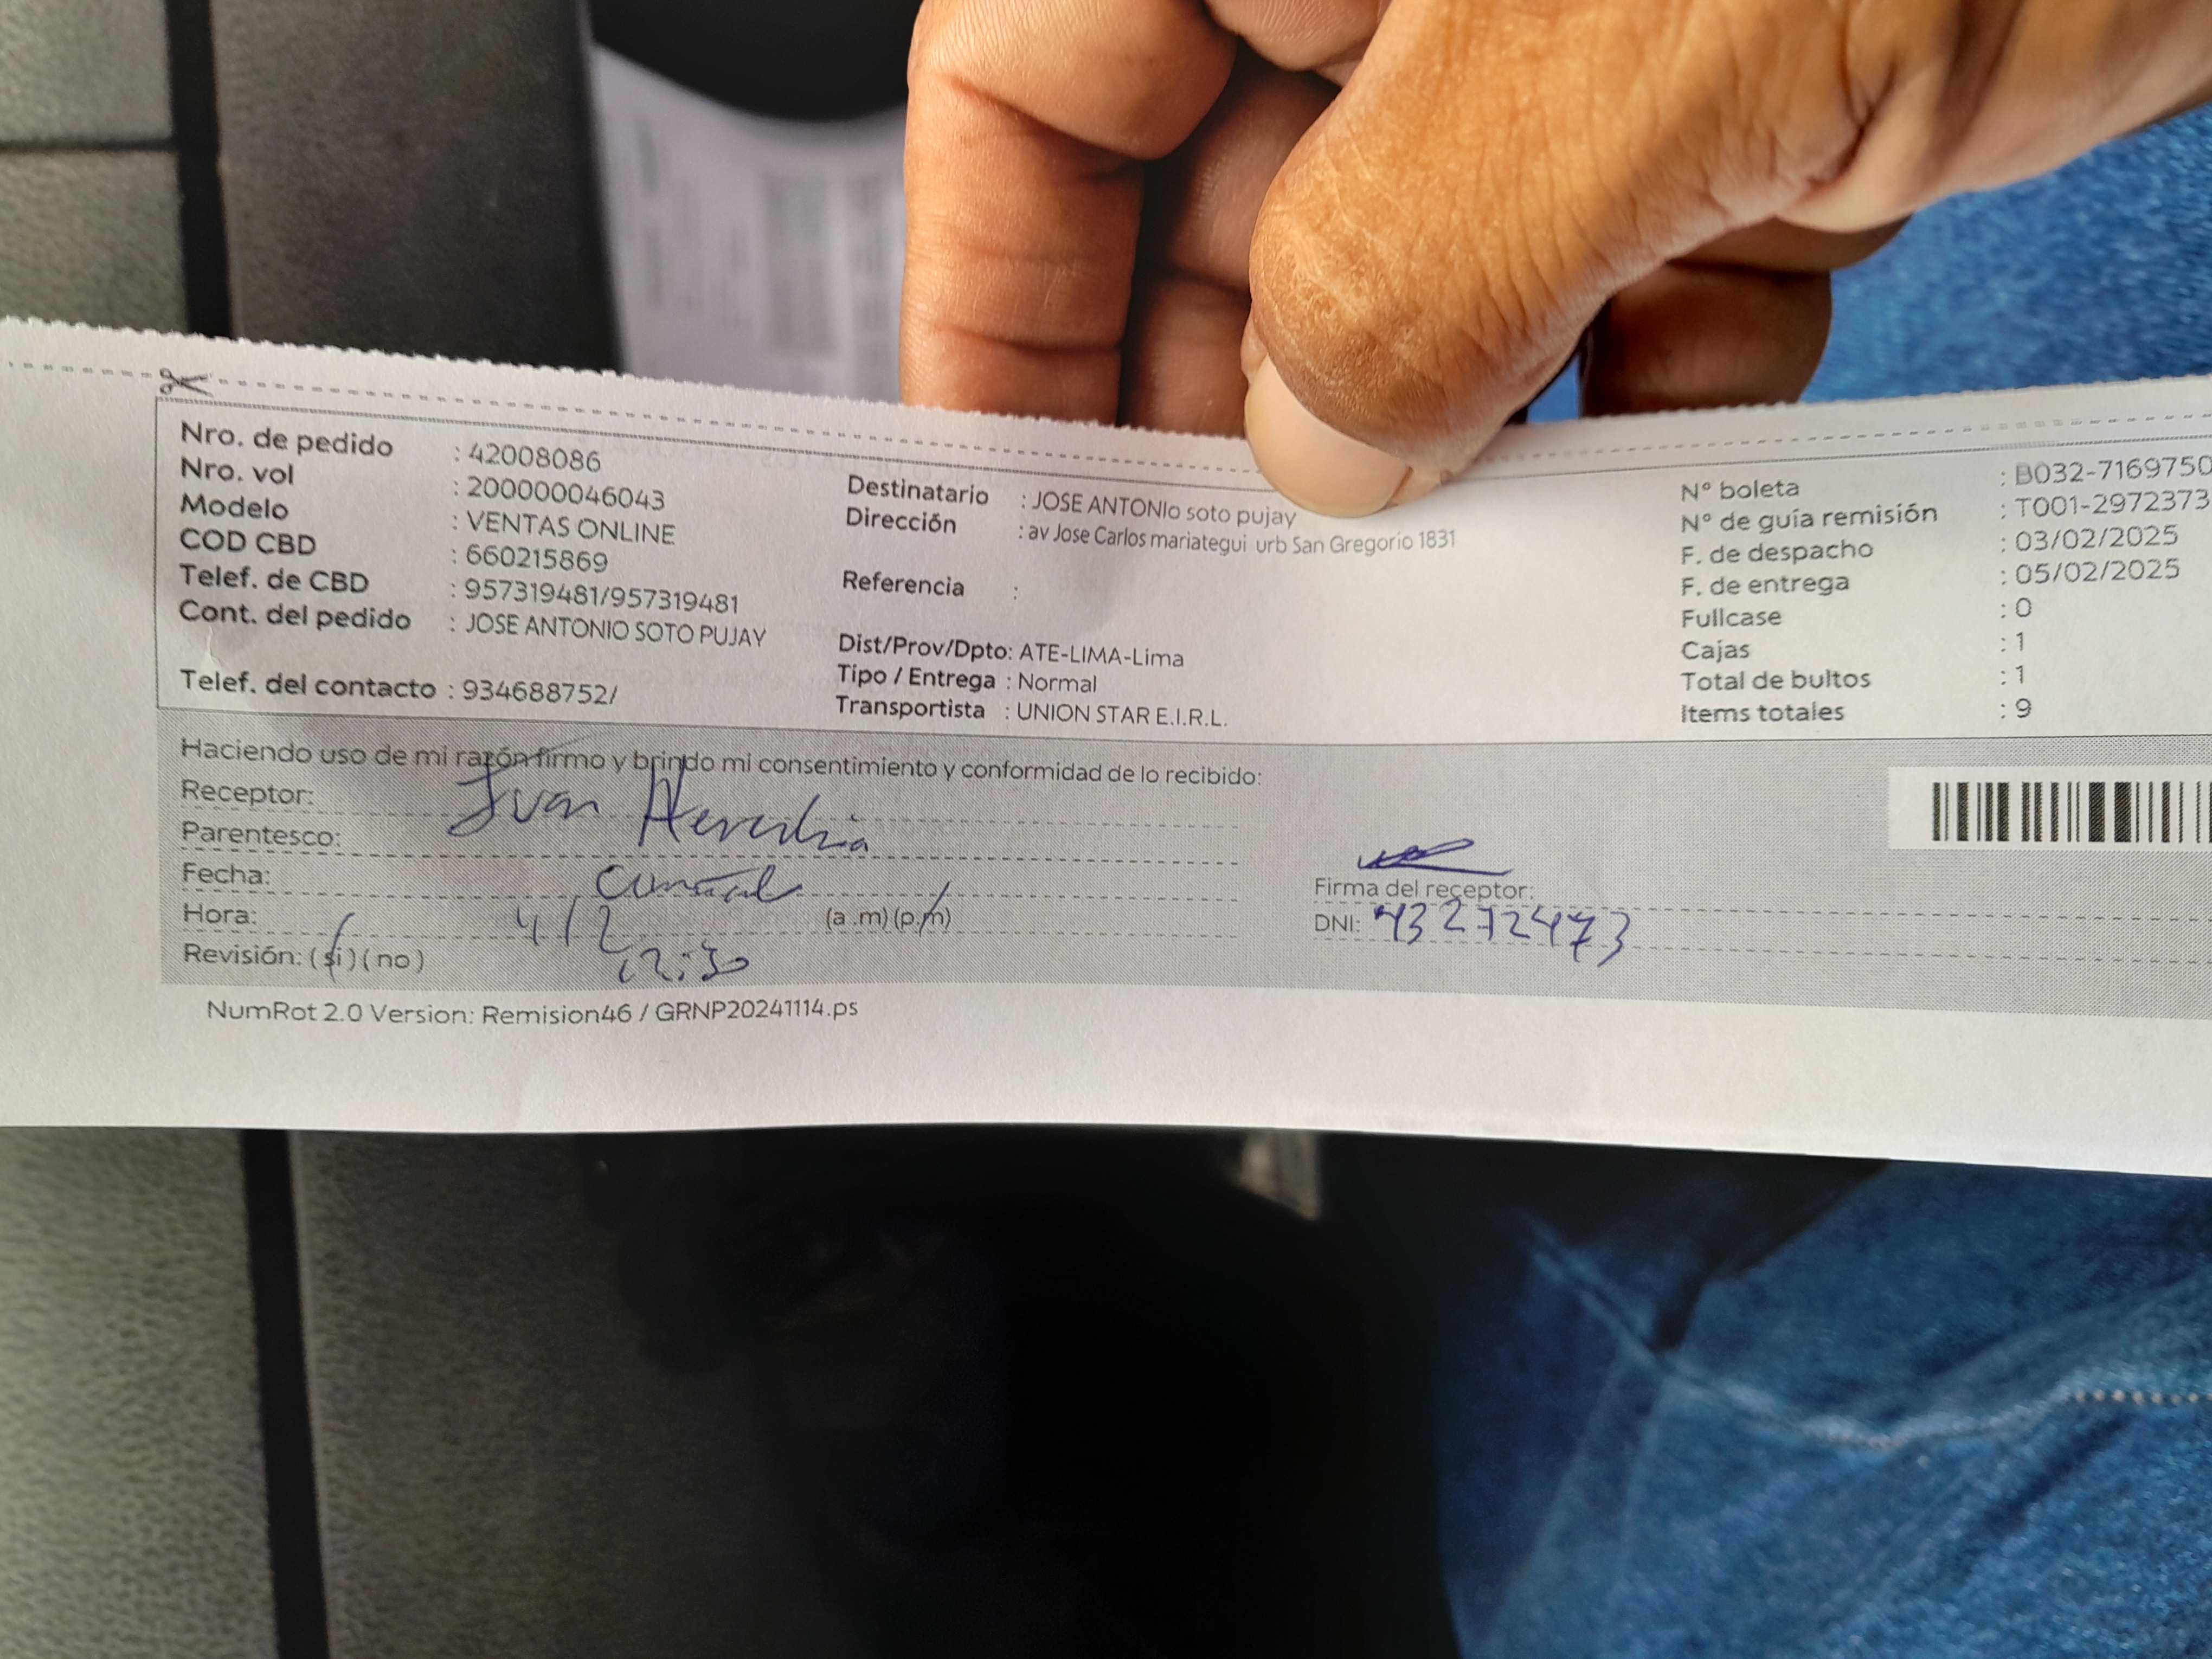 Nro. de pedido : 42008086
Nro. vol : 200000046043
Modelo : VENTAS ONLINE
COD CBD : 660215869
Telef. de CBD : 957319481/957319481
Cont. del pedido : JOSE ANTONIO SOTO PUJAY
Telef. del contacto : 934688752/
Destinatario : JOSE ANTONIo soto pujay
Dirección : av Jose Carlos mariategui urb San Gregorio 1831
Referencia :
Dist/Prov/Dpto: ATE-LIMA-Lima
Tipo / Entrega : Normal
Transportista : UNION STAR E.I.R.L.
N° boleta : B032-7169750
N° de guía remisión : T001-2972373
F. de despacho : 03/02/2025
F. de entrega : 05/02/2025
Fullcase : 0
Cajas : 1
Total de bultos : 1
Items totales : 9
Haciendo uso de mi razón firmo y brindo mi consentimiento y conformidad de lo recibido:
Receptor: Juan
Parentesco:
Fecha: 4/2
Hora: 12:30 (a .m) (p.m)
Revisión: (si) (no)
Firma del receptor:
DNI: 43272473
NumRot 2.0 Version: Remision46 / GRNP20241114.ps